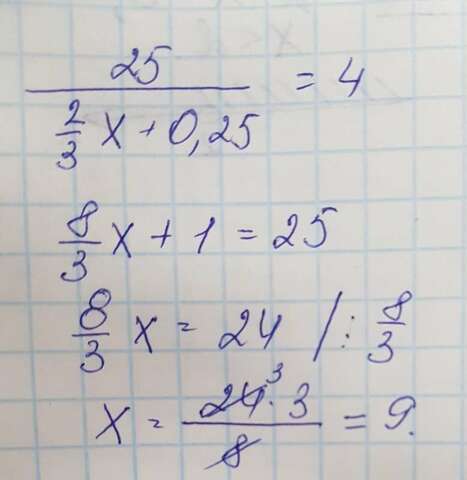 25 / (2/3 x + 0,25) = 4
8/3 x + 1 = 25
8/3 x = 24 /: 8/3
x = 24³ · 3 / 8 = 9.